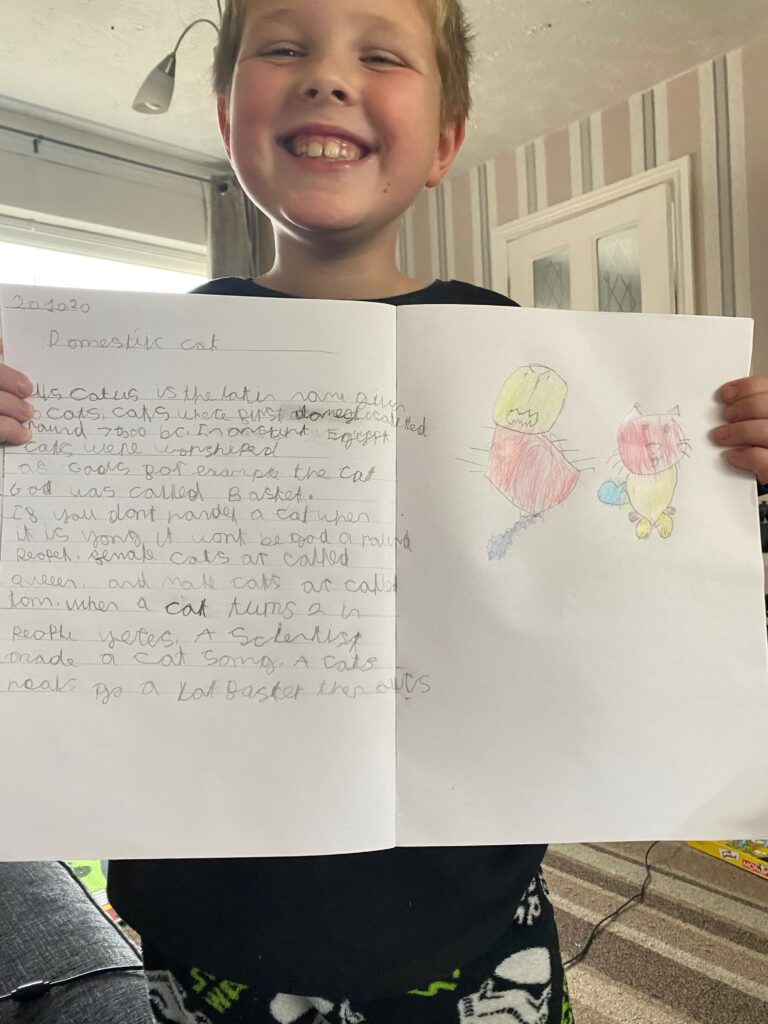 20.10.20
Domestik cat
is the latin name given
cats. cats where first
7500 bc. In Egypt
cats were worshiped
as Gods for example the cat
God was called Basket.
If you dont handel a cat when
it is yong it wont be god a
Peopel. cats ar called
queen. and male cats ar called
tom. when a cat turns 2 in
People yeres. A Scientist
made a cat Song. A cats
go a lot faster then